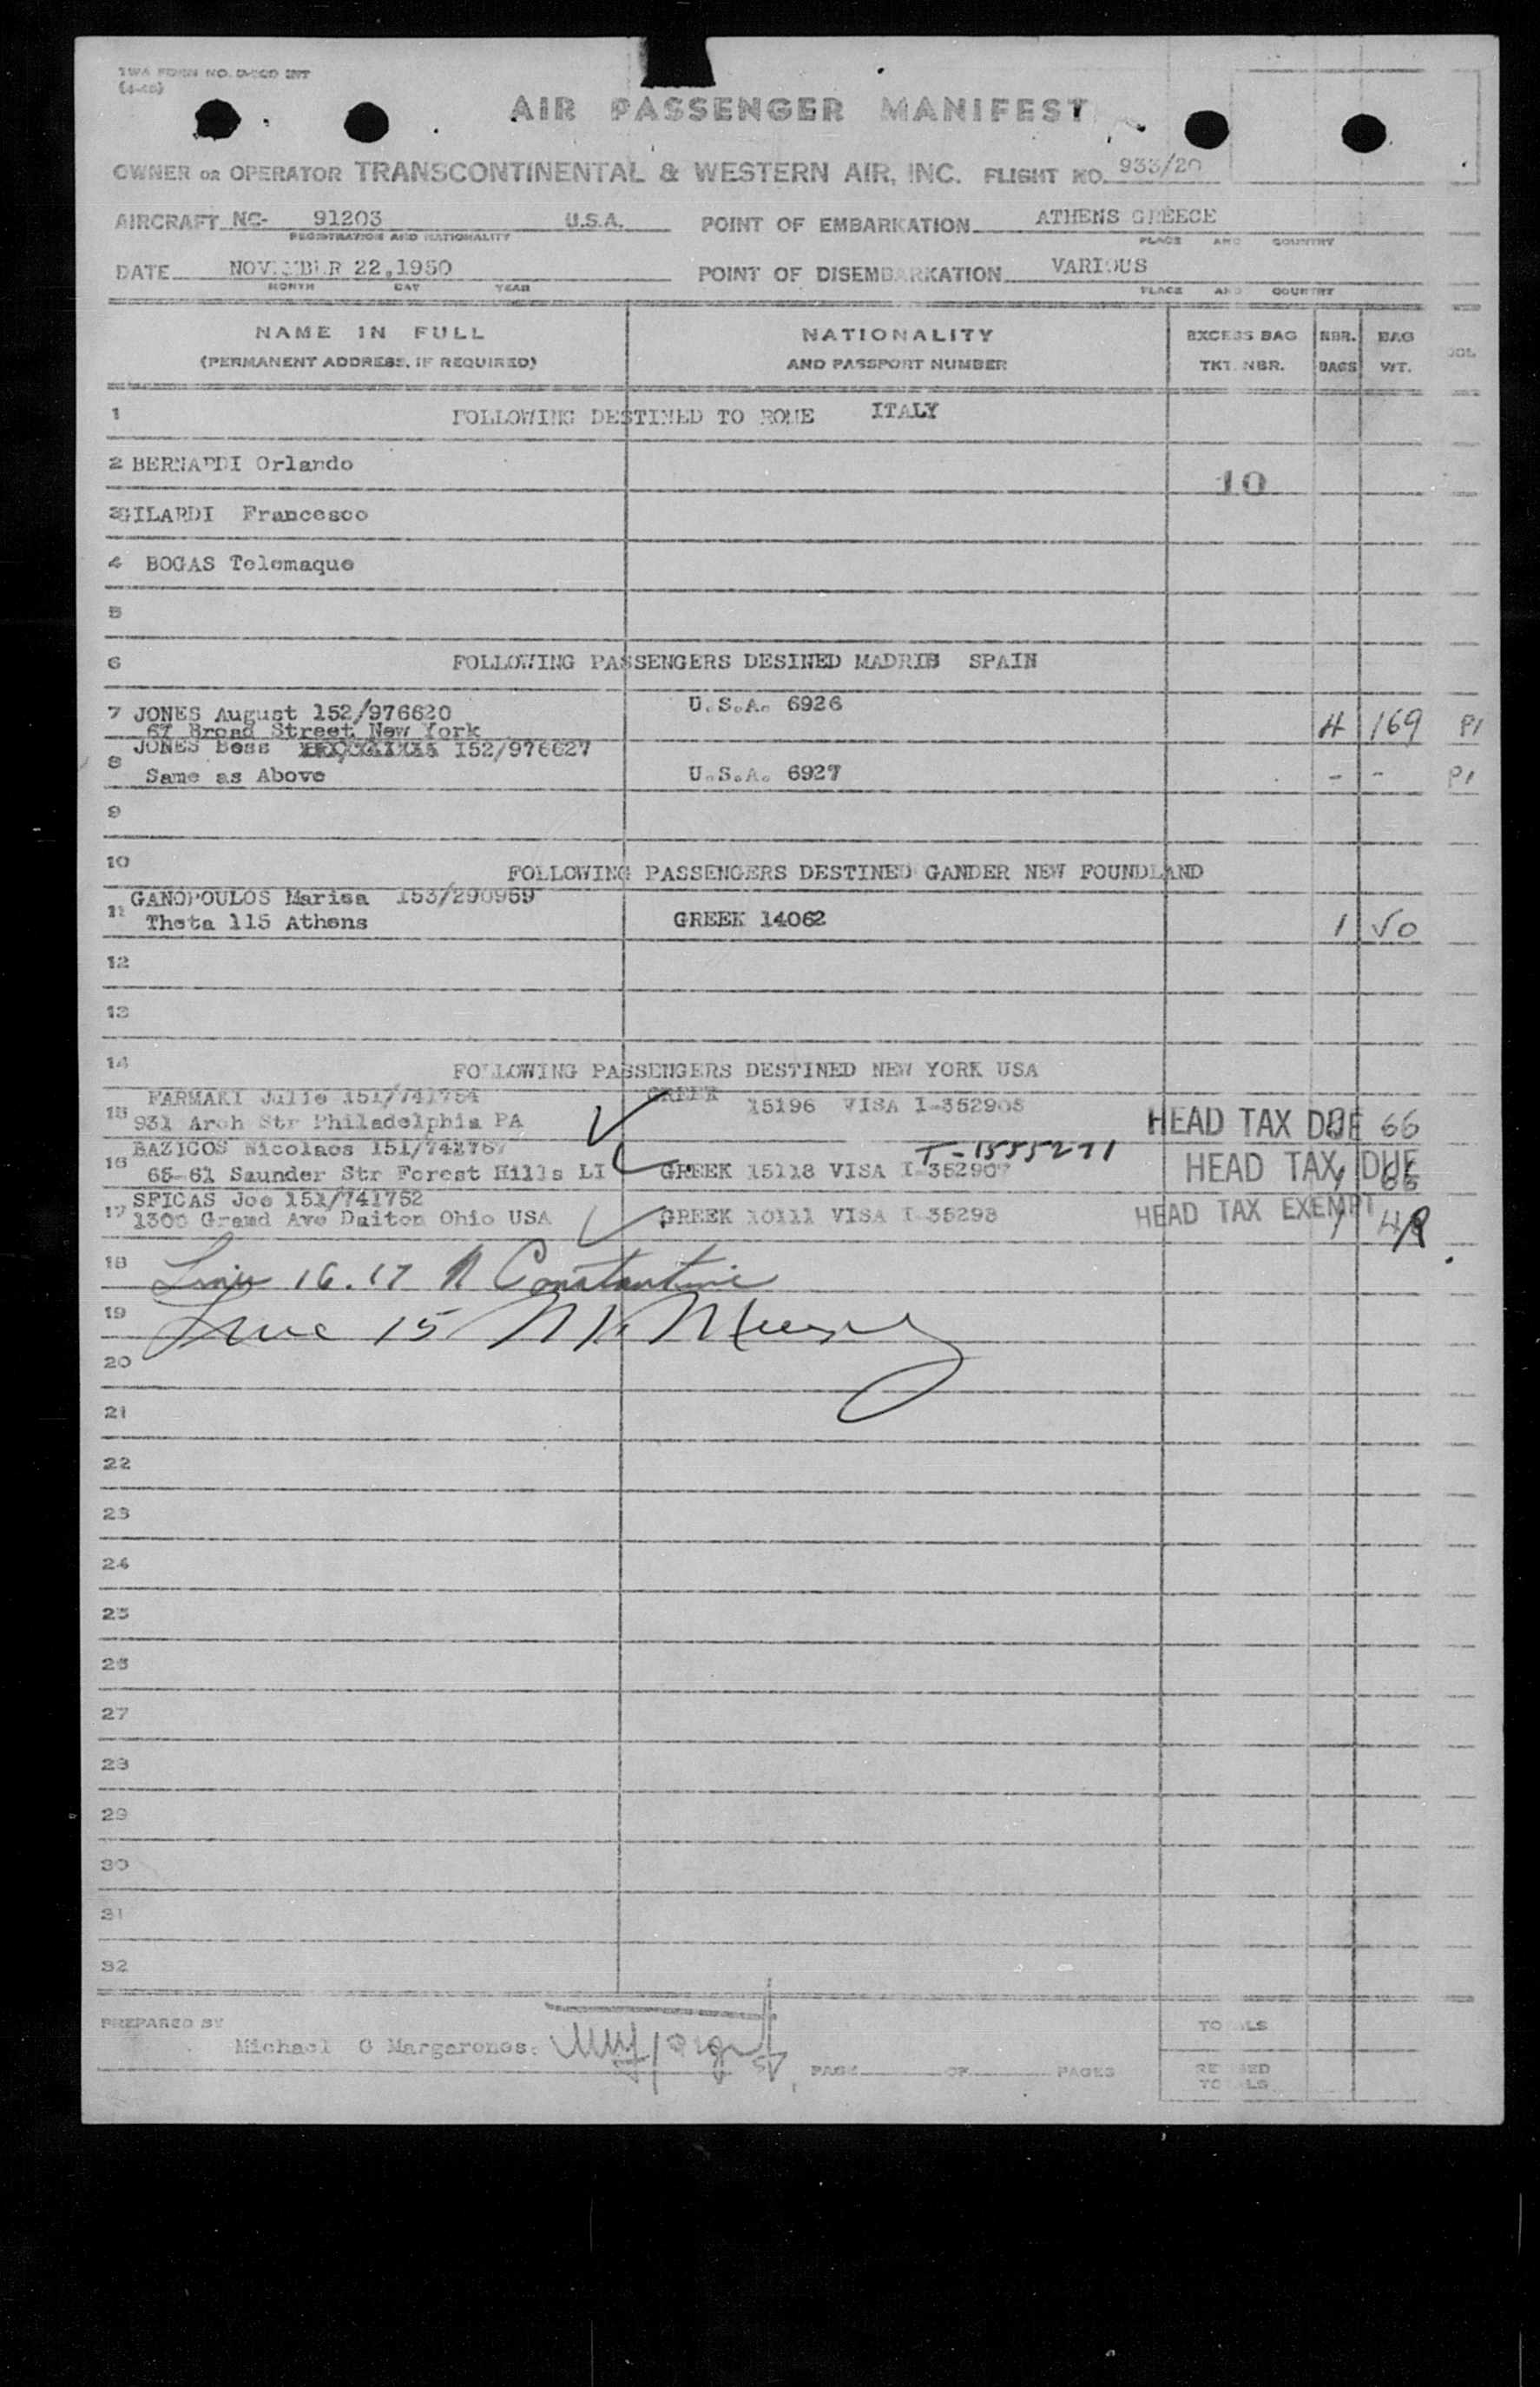 (4-48)
AIR PASSENGER MANIFEST
OWNER OR OPERATOR TRANSCONTINENTAL & WESTERN AIR, INC. FLIGHT NO. 933/20
AIRCRAFT NC- 91203 U.S.A. POINT OF EMBARKATION ATHENS GREECE
REGISTRATION AND NATIONALITY PLACE AND COUNTRY
DATE NOVEMBER 22,1950 POINT OF DISEMBARKATION VARIOUS
MONTH DAY YEAR PLACE AND COUNTRY
NAME IN FULL NATIONALITY EXCESS BAG NBR. BAG
(PERMANENT ADDRESS, IF REQUIRED) AND PASSPORT NUMBER TKT. NBR. BAGS WT.
1 FOLLOWING DESTINED TO ROME ITALY
2 BERNARDI Orlando
10
3 GILARDI Francesco
4 BOGAS Telemaque
5
6 FOLLOWING PASSENGERS DESINED MADRID SPAIN
7 JONES August 152/976620 U.S.A. 6926
67 Broad Street New York 4 169 P1
JONES Bess 152/976627
8 Same as Above U.S.A. 6927 - - P1
9
10 FOLLOWING PASSENGERS DESTINED GANDER NEW FOUNDLAND
GANOPOULOS Marisa 153/290959
11 Theta 115 Athens GREEK 14062 1 50
12
13
14 FOLLOWING PASSENGERS DESTINED NEW YORK USA
FARMAKI Julie 151/741754 GREEK 15196 VISA I-352905
15 931 Arch Str Philadelphia PA HEAD TAX DUE 66
BAZIGOS Nicolaos T-1555271
16 65-61 Saunder Str Forest Hills LI GREEK 15118 VISA I-352907 HEAD TAX DUE
SFICAS Joe 151/741752
17 1300 Grand Ave Daiton Ohio USA GREEK 10111 VISA I-35298 HEAD TAX EXEMPT
18 Line 16.17 N Constantine
19 Line 15
20
21
22
23
24
25
26
27
28
29
30
31
32
PREPARED BY TOTALS
Michael G Margaronos.
PAGE OF PAGES REVISED
TOTALS